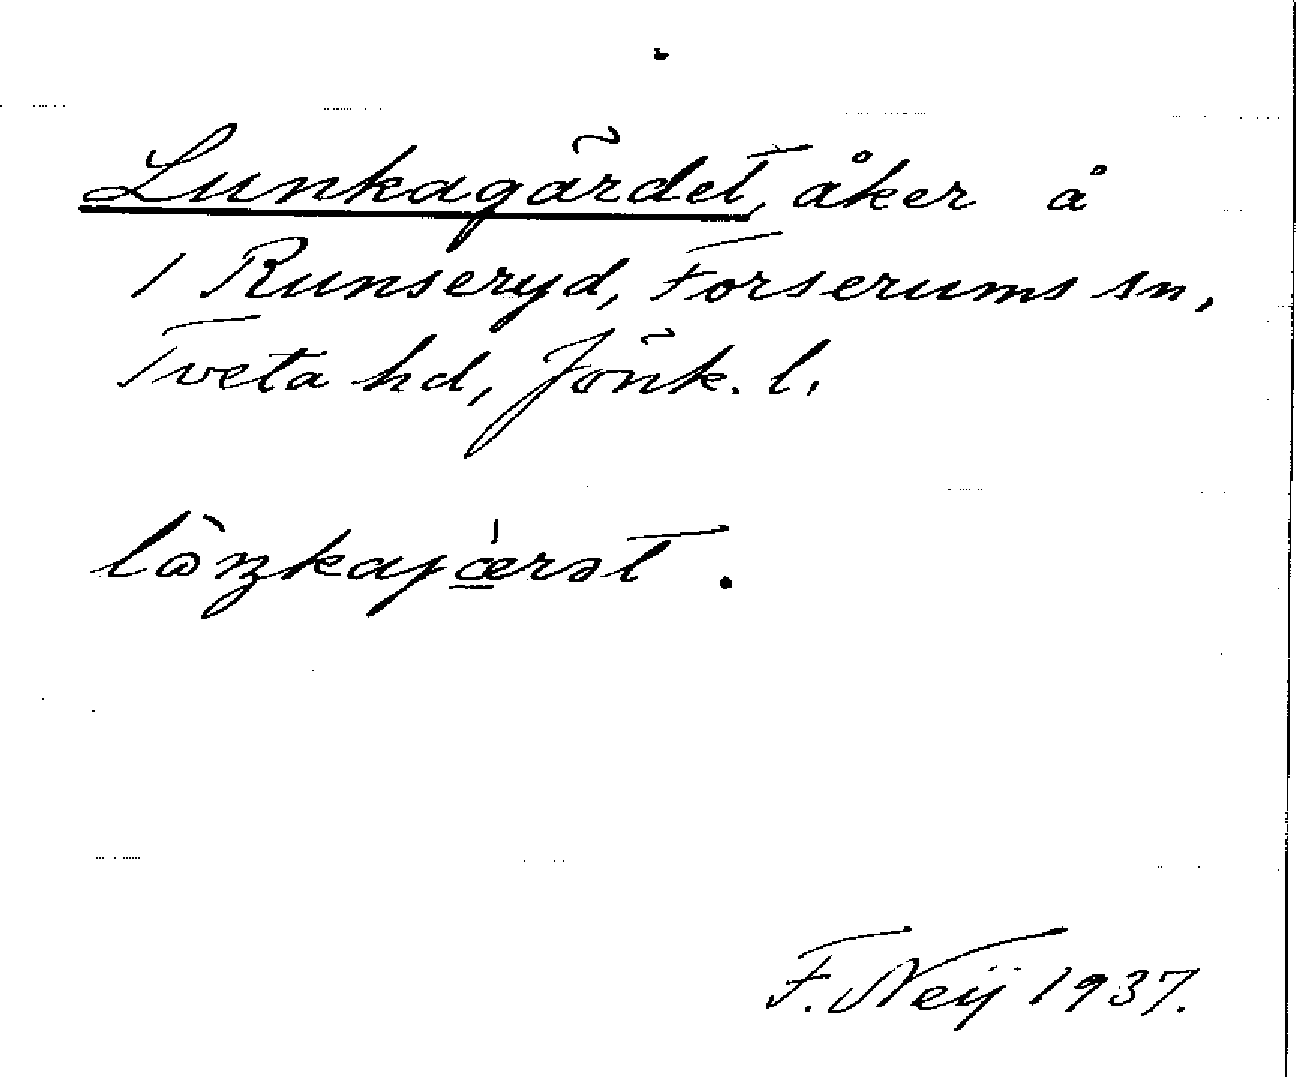 Lunkagärdet, åker å
1 Runseryd, Forserums sn,
Tveta hd, Jönk. l.
F. Neij 1937.